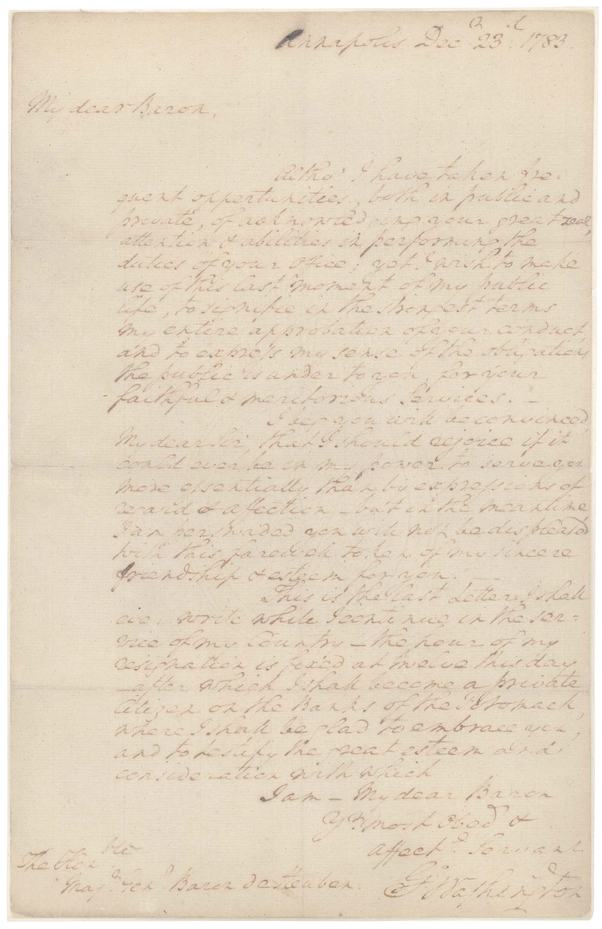 Annapolis Decr 23d 1783.
My dear Baron,
Altho' I have taken fre-
quent opportunities, both in public and
private, of acknowledging your great zeal,
attention & abilities in performing the
duties of your Office; yet I wish to make
use of this last moment of my public
life, to signifie in the strongest terms
my entire approbation of your conduct,
and to express my sense of the obligations
the public is under to you, for your
faithful & meritorious Services. –
I beg you will be convinced,
My dear Sir, that I should rejoice if it
could ever be in my power to serve you
more essentially than by expressions of
regard & affection – but in the meantime
I am perswaded you will not be displeased
with this farewell token of my sincere
friendship & esteem for you. –
This is the last Letter I shall
ever write while I continue in the ser-
vice of my Country – the hour of my
resignation is fixed at twelve this day
– after which I shall become a private
Citizen on the Banks of the Potomack,
where I shall be glad to embrace you,
and to testify the great esteem and
consideration with which
I am – My dear Baron
Yr most Obedt &
affecte Servant
Go: Washington
The Honble
Majr Genl Baron de Steuben.